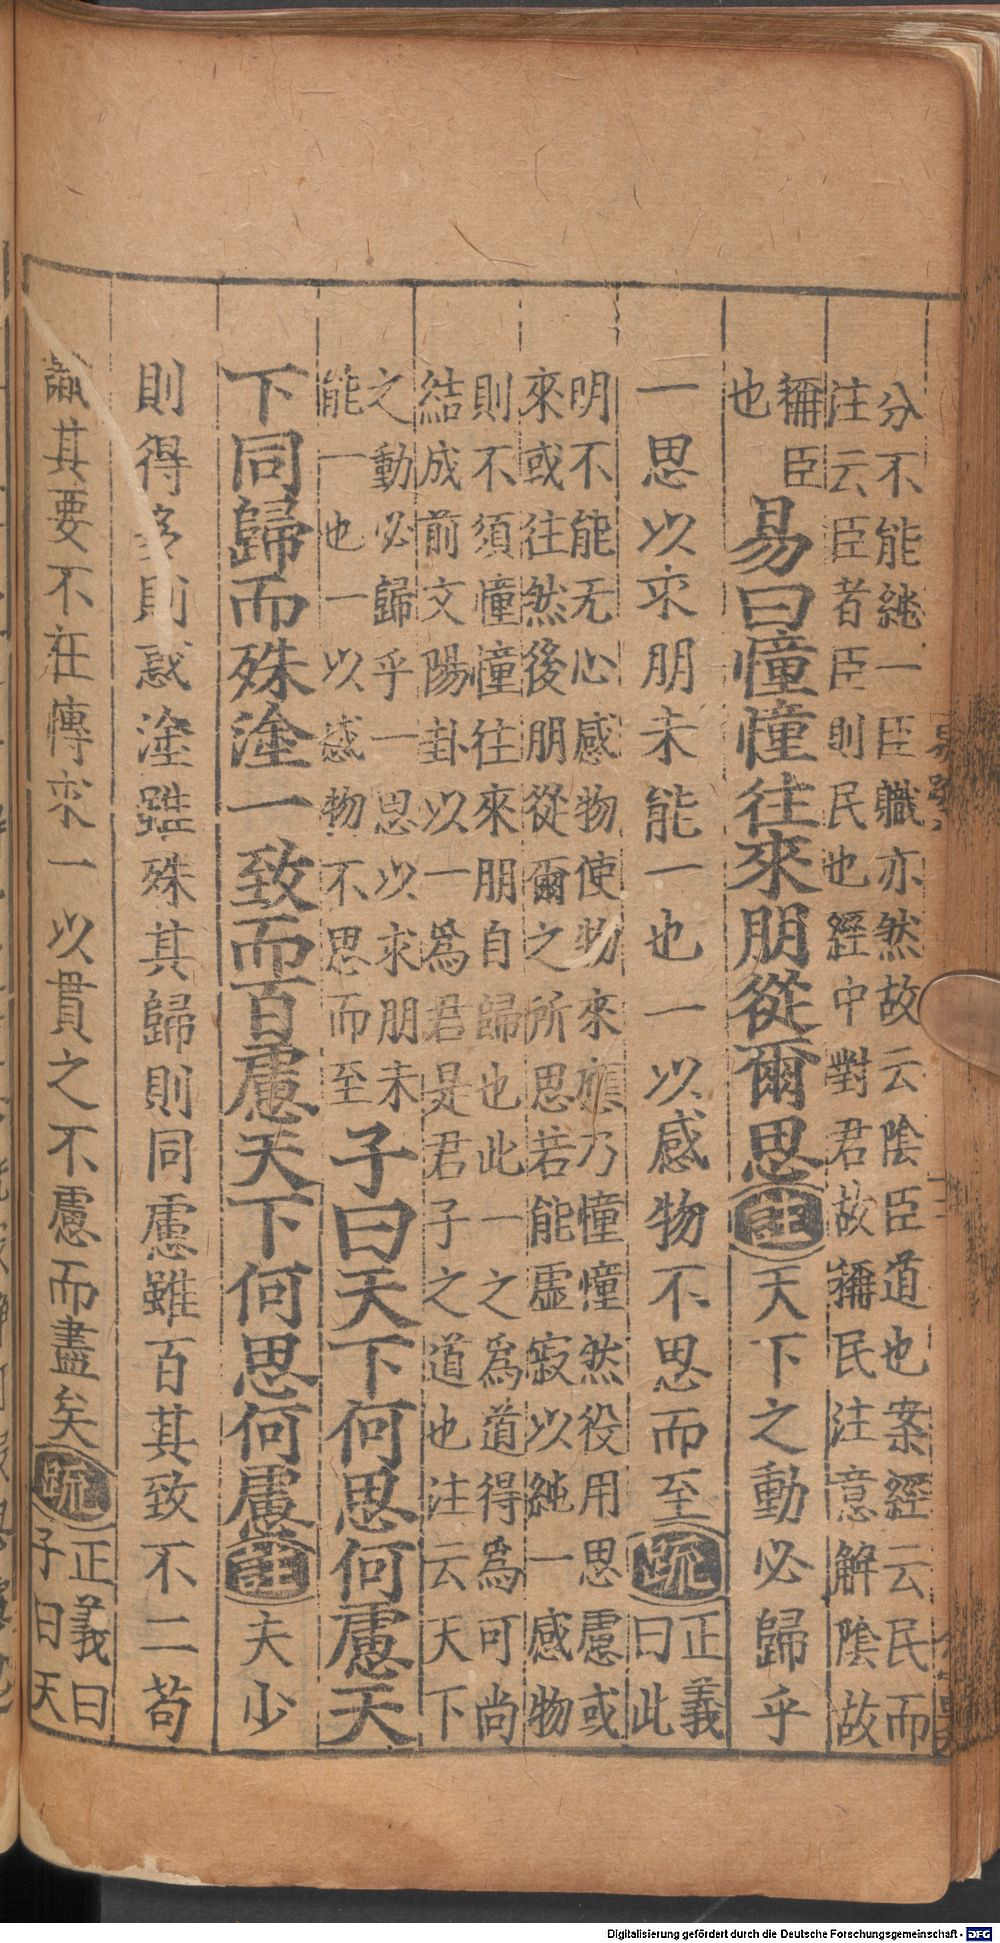 分不能純一臣職亦然故云陰臣道也案經云民而
注云臣者臣則民也經中對君故稱民注意解陰故
稱臣
也
易曰憧憧往來朋從爾思註天下之動必歸乎
一思以求朋未能一也一以感物不思而至疏正義
曰此
明不能无心感物使物來應乃憧憧然役用思慮或
來或往然後朋從爾之所思若能虛寂以純一感物
則不須憧憧往來朋自歸也此一之爲道得爲可尚
結成前文陽卦以一爲君是君子之道也注云天下
之動必歸乎一思以求朋未
能一也一以感物不思而至
子曰天下何思何慮天
下同歸而殊塗一致而百慮天下何思何慮註夫少
則得多則惑塗雖殊其歸則同慮雖百其致不二苟
識其要不在慱求一以貫之不慮而盡矣疏正義曰
子曰天
Digitalisierung gefördert durch die Deutsche Forschungsgemeinschaft - DFG